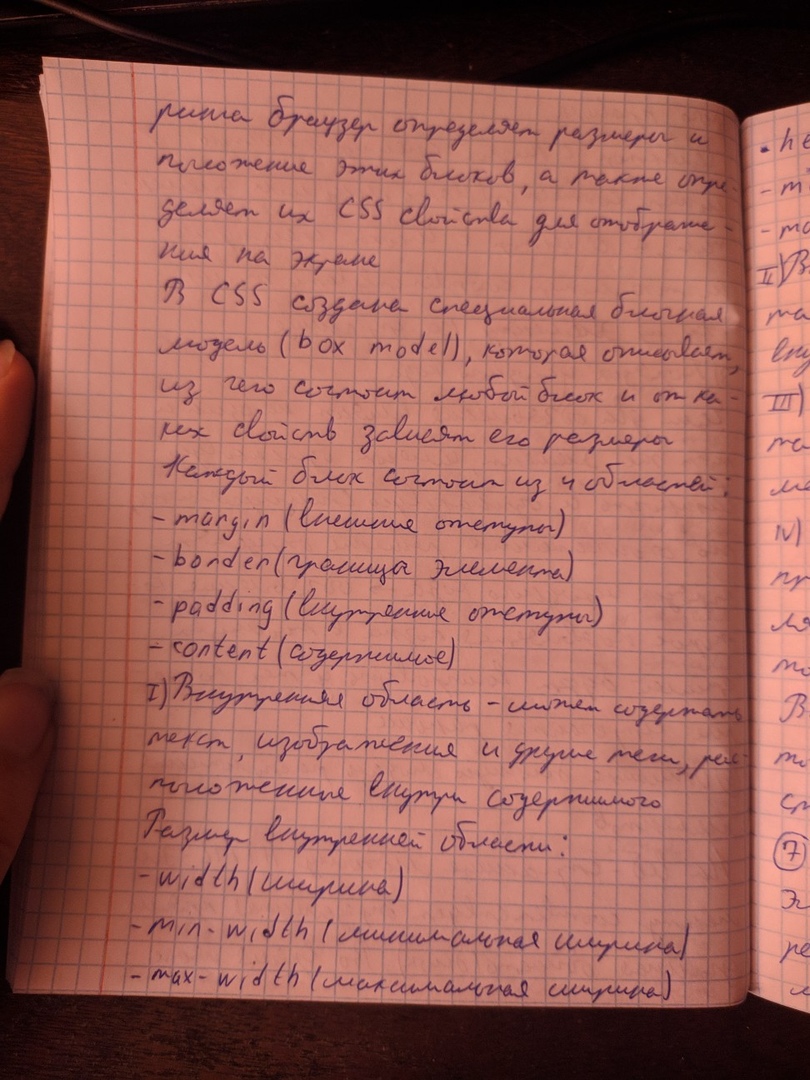 ринга браузер определяет размеры и
положение этих блоков, а также опре-
деляет их CSS свойства для отображе-
ния на экране
В CSS создана специальная блочная
модель (box model), которая описывает,
из чего состоит любой блок и от ка-
ких свойств зависят его размеры
Каждый блок состоит из 4 областей:
- margin (внешние отступы)
- border (границы элемента)
- padding (внутренние отступы)
- content (содержимое)
I) Внутренняя область - может содержать
текст, изображения и другие теги, рас-
положенные внутри содержимого
Размер внутренней области:
- width (ширина)
- min-width (минимальная ширина)
- max-width (максимальная ширина)
II)
III)
IV)
7